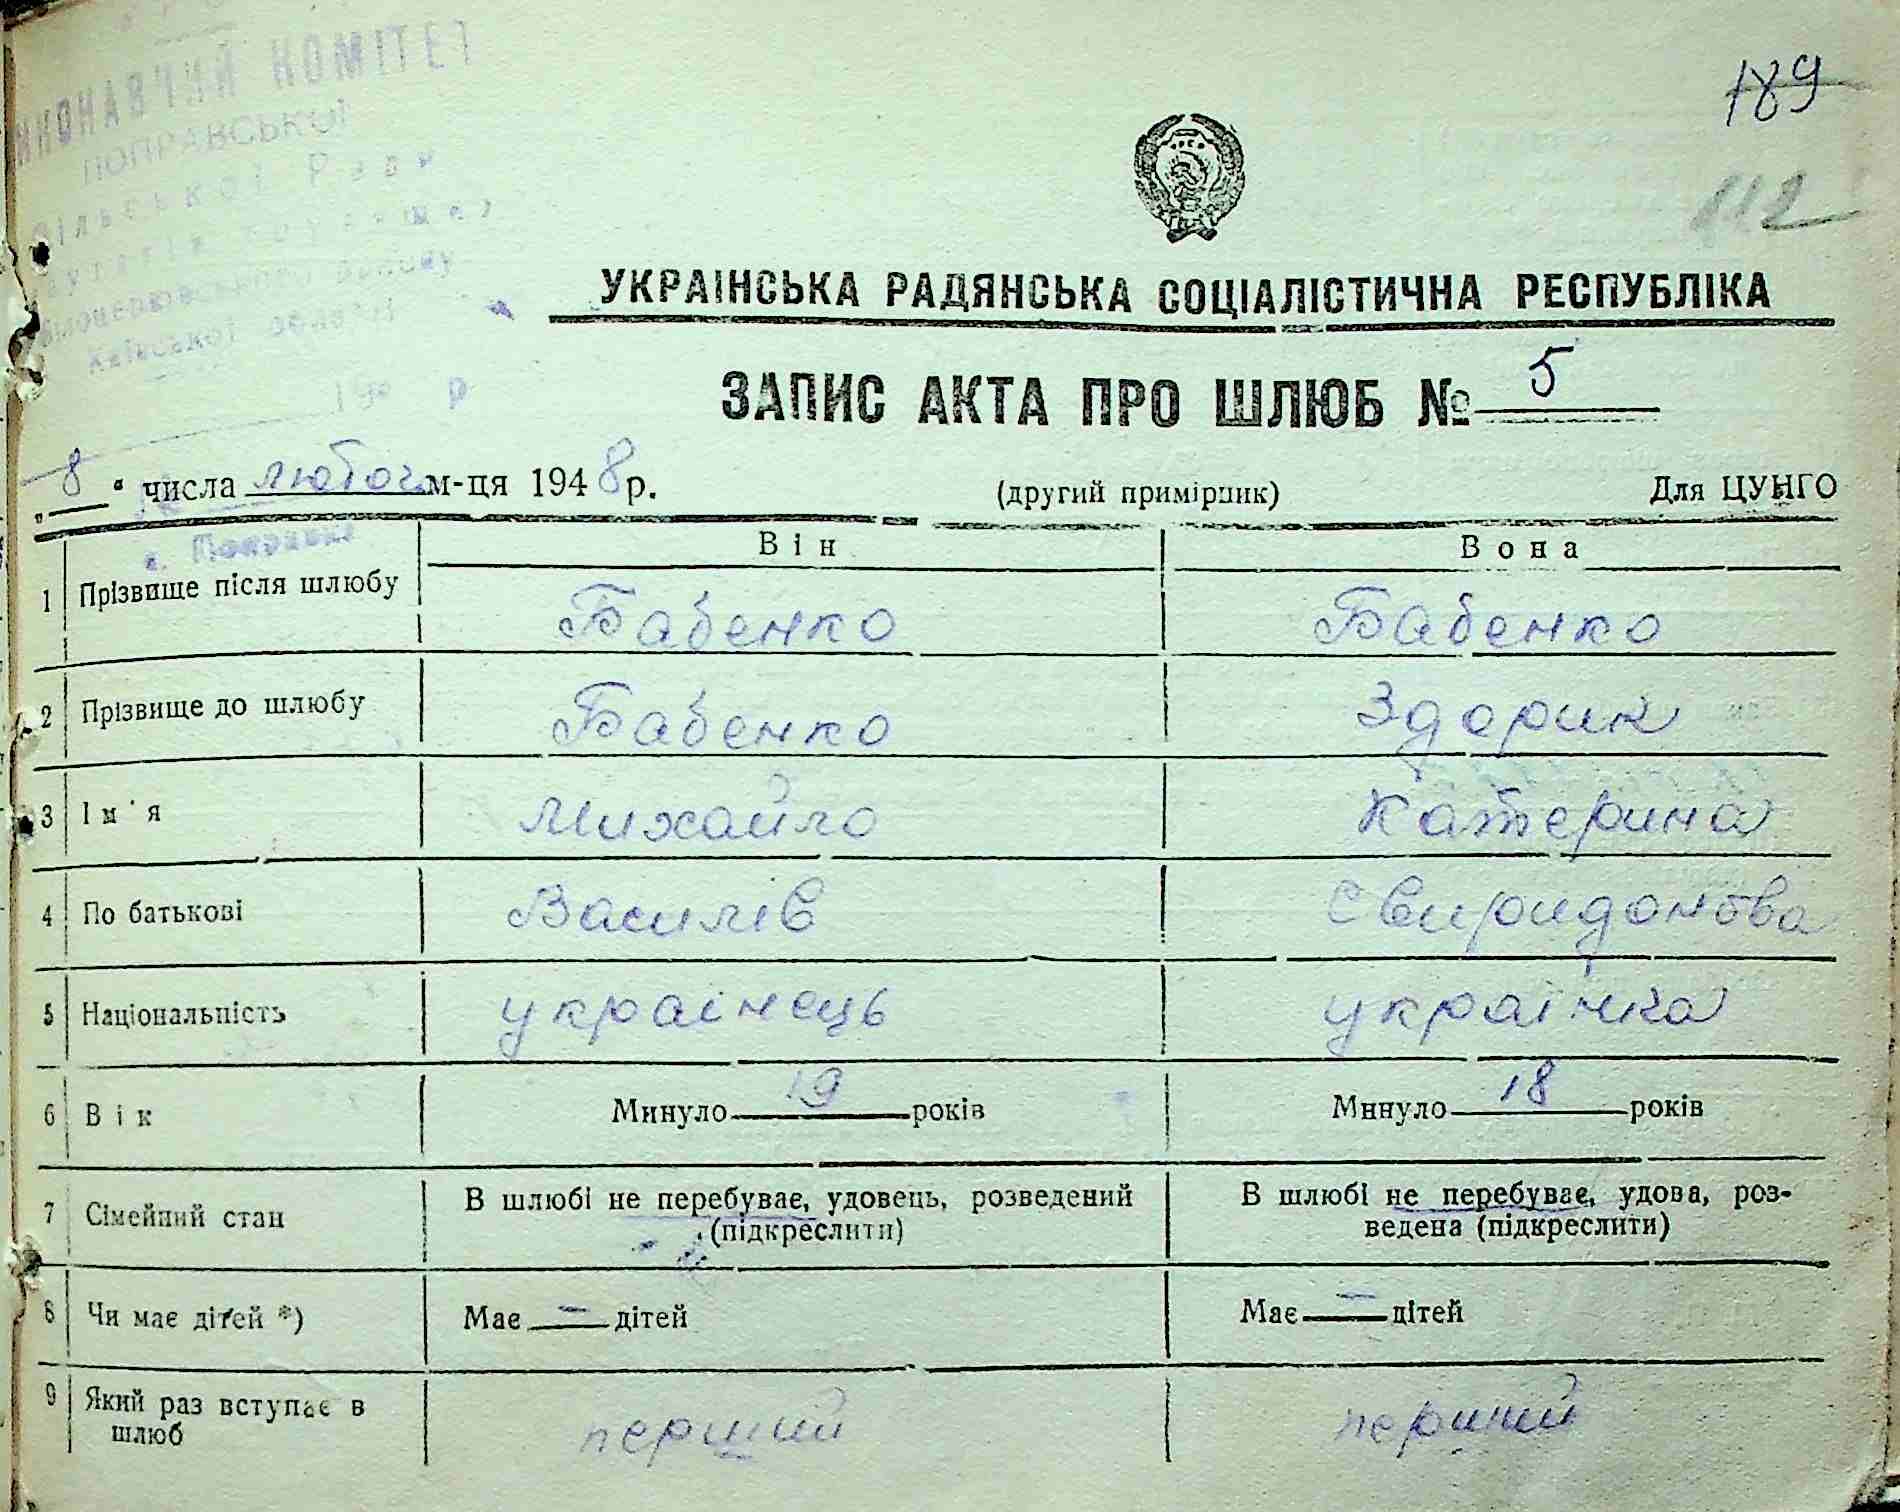 ВИКОНАВЧИЙ КОМІТЕТ
ПОПРАВСЬКОЇ
сільської Ради
Київської області
19 р
189
112
УКРАІНСЬКА РАДЯНСЬКА СОЦІАЛІСТИЧНА РЕСПУБЛІКА
ЗАПИС АКТА ПРО ШЛЮБ № 5
„8“ числа лютого м-ця 1948 р. (другий примірник) Для ЦУНГО
Він Вона
1 Прізвище після шлюбу Бабенко Бабенко
2 Прізвище до шлюбу Бабенко Здорик
3 Ім'я Михайло Катерина
4 По батькові Василів Свиридонова
5 Національність украінець украінка
6 Вік Минуло 19 років Минуло 18 років
7 Сімейний стан В шлюбі не перебуває, удовець, розведений В шлюбі не перебуває, удова, роз-
(підкреслити) ведена (підкреслити)
8 Чи має дітей *) Має — дітей Має — дітей
9 Який раз вступає в перший перший
шлюб